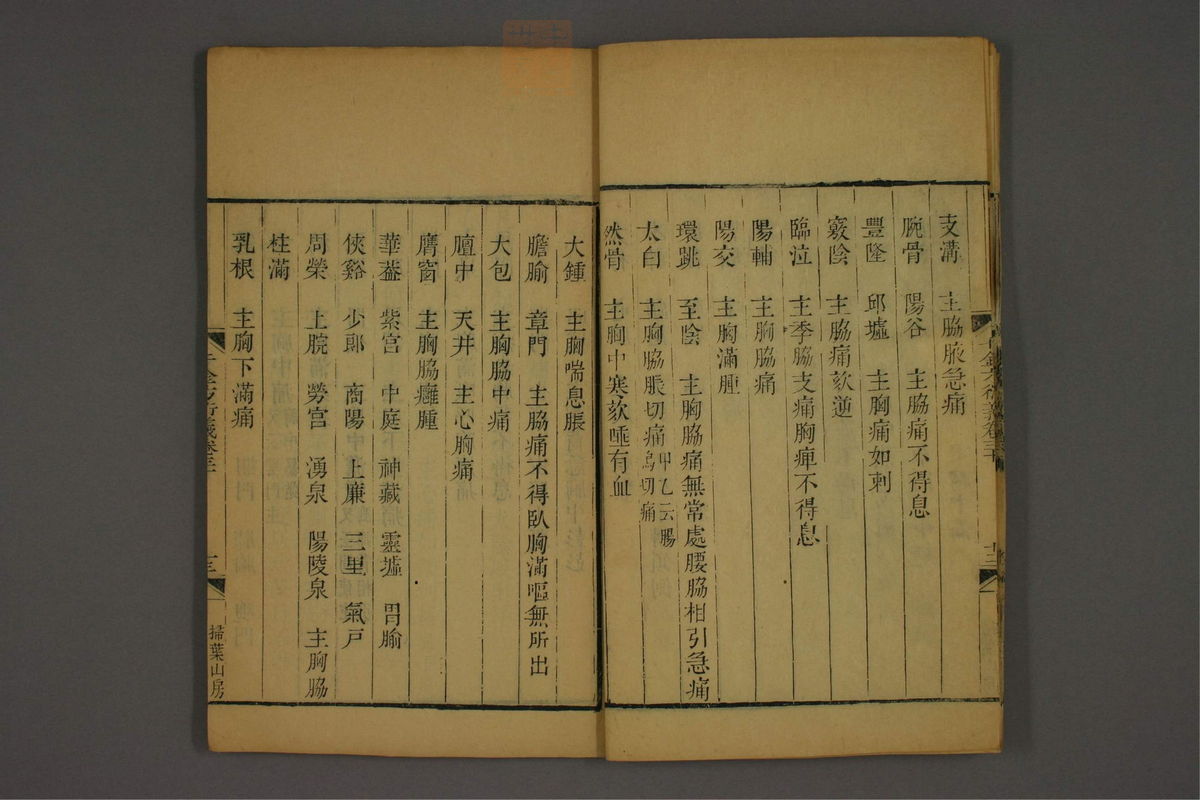 支溝　主脇腋急痛
腕骨　陽谷　主脇痛不得息
豐隆　邱墟　主胸痛如刺
竅陰　主脇痛欬逆
臨泣　主季脇支痛胸痺不得息
陽輔　主胸脇痛
陽交　主胸滿腫
環跳　至陰　主胸脇痛無常處腰脇相引急痛
太白　主胸脇脹切痛甲乙云腸鳴切痛
然骨　主胸中寒欬唾有血
大鍾　主胸喘息脹
膽腧　章門　主脇痛不得臥胸滿嘔無所出
大包　主胸脇中痛
膻中　天井　主心胸痛
膺窗　主胸脇癰腫
華蓋　紫宮　中庭　神藏　靈墟　胃腧
俠谿　少郞　商陽　上廉　三里　氣戶
周榮　上脘　勞宮　湧泉　陽陵泉　主胸脇
柱滿
乳根　主胸下滿痛
掃葉山房